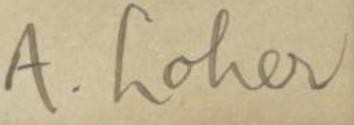 A. Loher